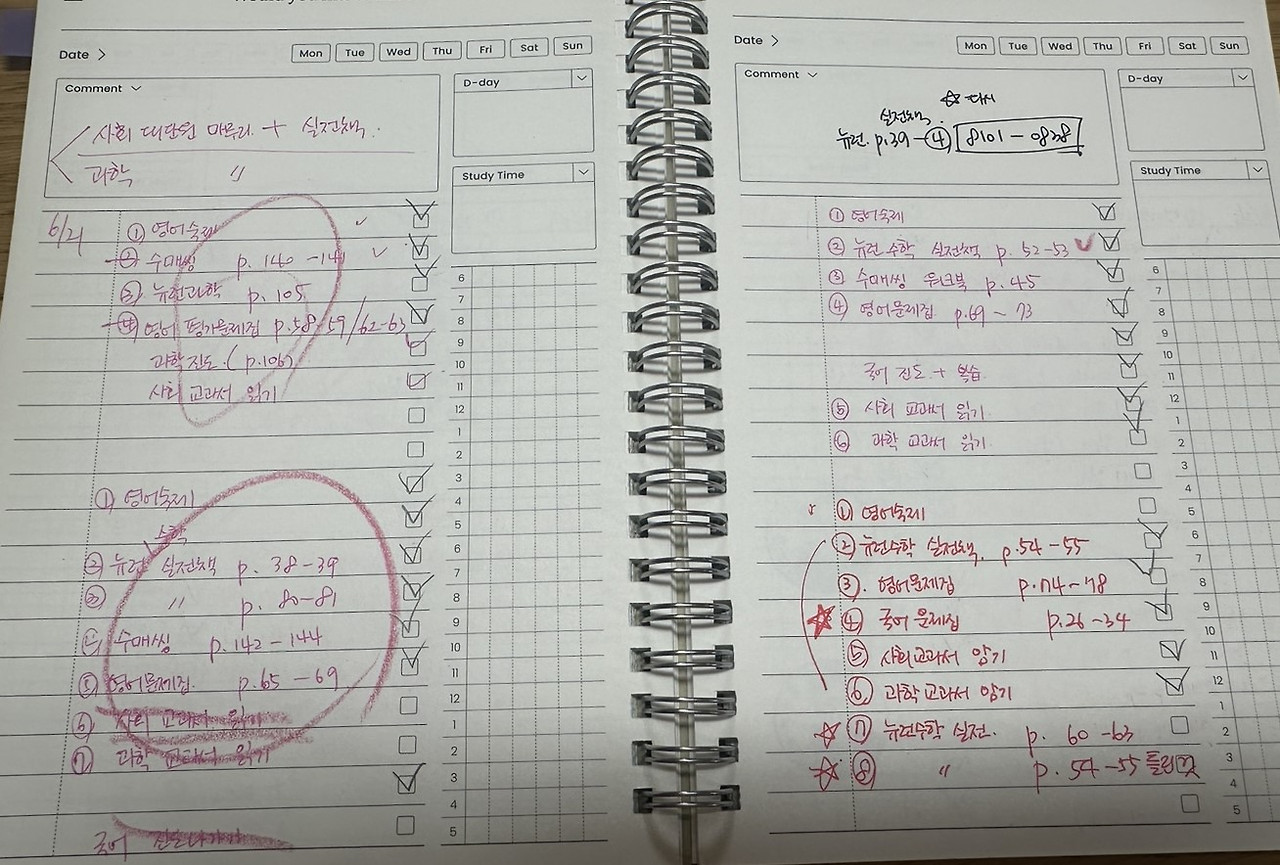 Date >
Mon Tue Wed Thu Fri Sat Sun
Comment
D-day
사회 대단원 마무리 + 실전책.
과학 "
Study Time
6/21
① 영어숙제
② 수매씽 p. 140 - 141
③ 뉴런과학 p. 105
④ 영어 평가문제집 p.58, 59 / 62-63
과학 진도. (p.106)
사회 교과서 읽기
① 영어숙제
수학
② 뉴런 실전책 p. 38-39
③ " p. 80-81
수매씽 p.142-144
⑤ 영어문제집. p.65 - 69
⑥ 사회 교과서 읽기
⑦ 과학 교과서 읽기
국어 진도나가기
6
7
8
9
10
11
12
1
2
3
4
5
6
7
8
9
10
11
12
1
2
3
4
5
Date >
Mon Tue Wed Thu Fri Sat Sun
Comment
D-day
☆ 다시
실전책.
뉴런. p.39-④ 8101-0838
Study Time
① 영어숙제
② 뉴런 수학 실전책 p. 52-53
③ 수매씽 워크북 p. 45
④ 영어문제집. p.69 ~ 73
국어 진도 + 복습
⑤ 사회 교과서 읽기
⑥ 과학 교과서 읽기
① 영어숙제
② 뉴런수학 실전책. p.54-55
③. 영어문제집 p.74-78
☆ ④ 국어 문제집 p.26-34
⑤ 사회교과서 암기
⑥ 과학교과서 암기
☆ ⑦ 뉴런수학 실전. p. 60-63
☆ ⑧ " p. 54-55 틀린것
6
7
8
9
10
11
12
1
2
3
4
5
6
7
8
9
10
11
12
1
2
3
4
5